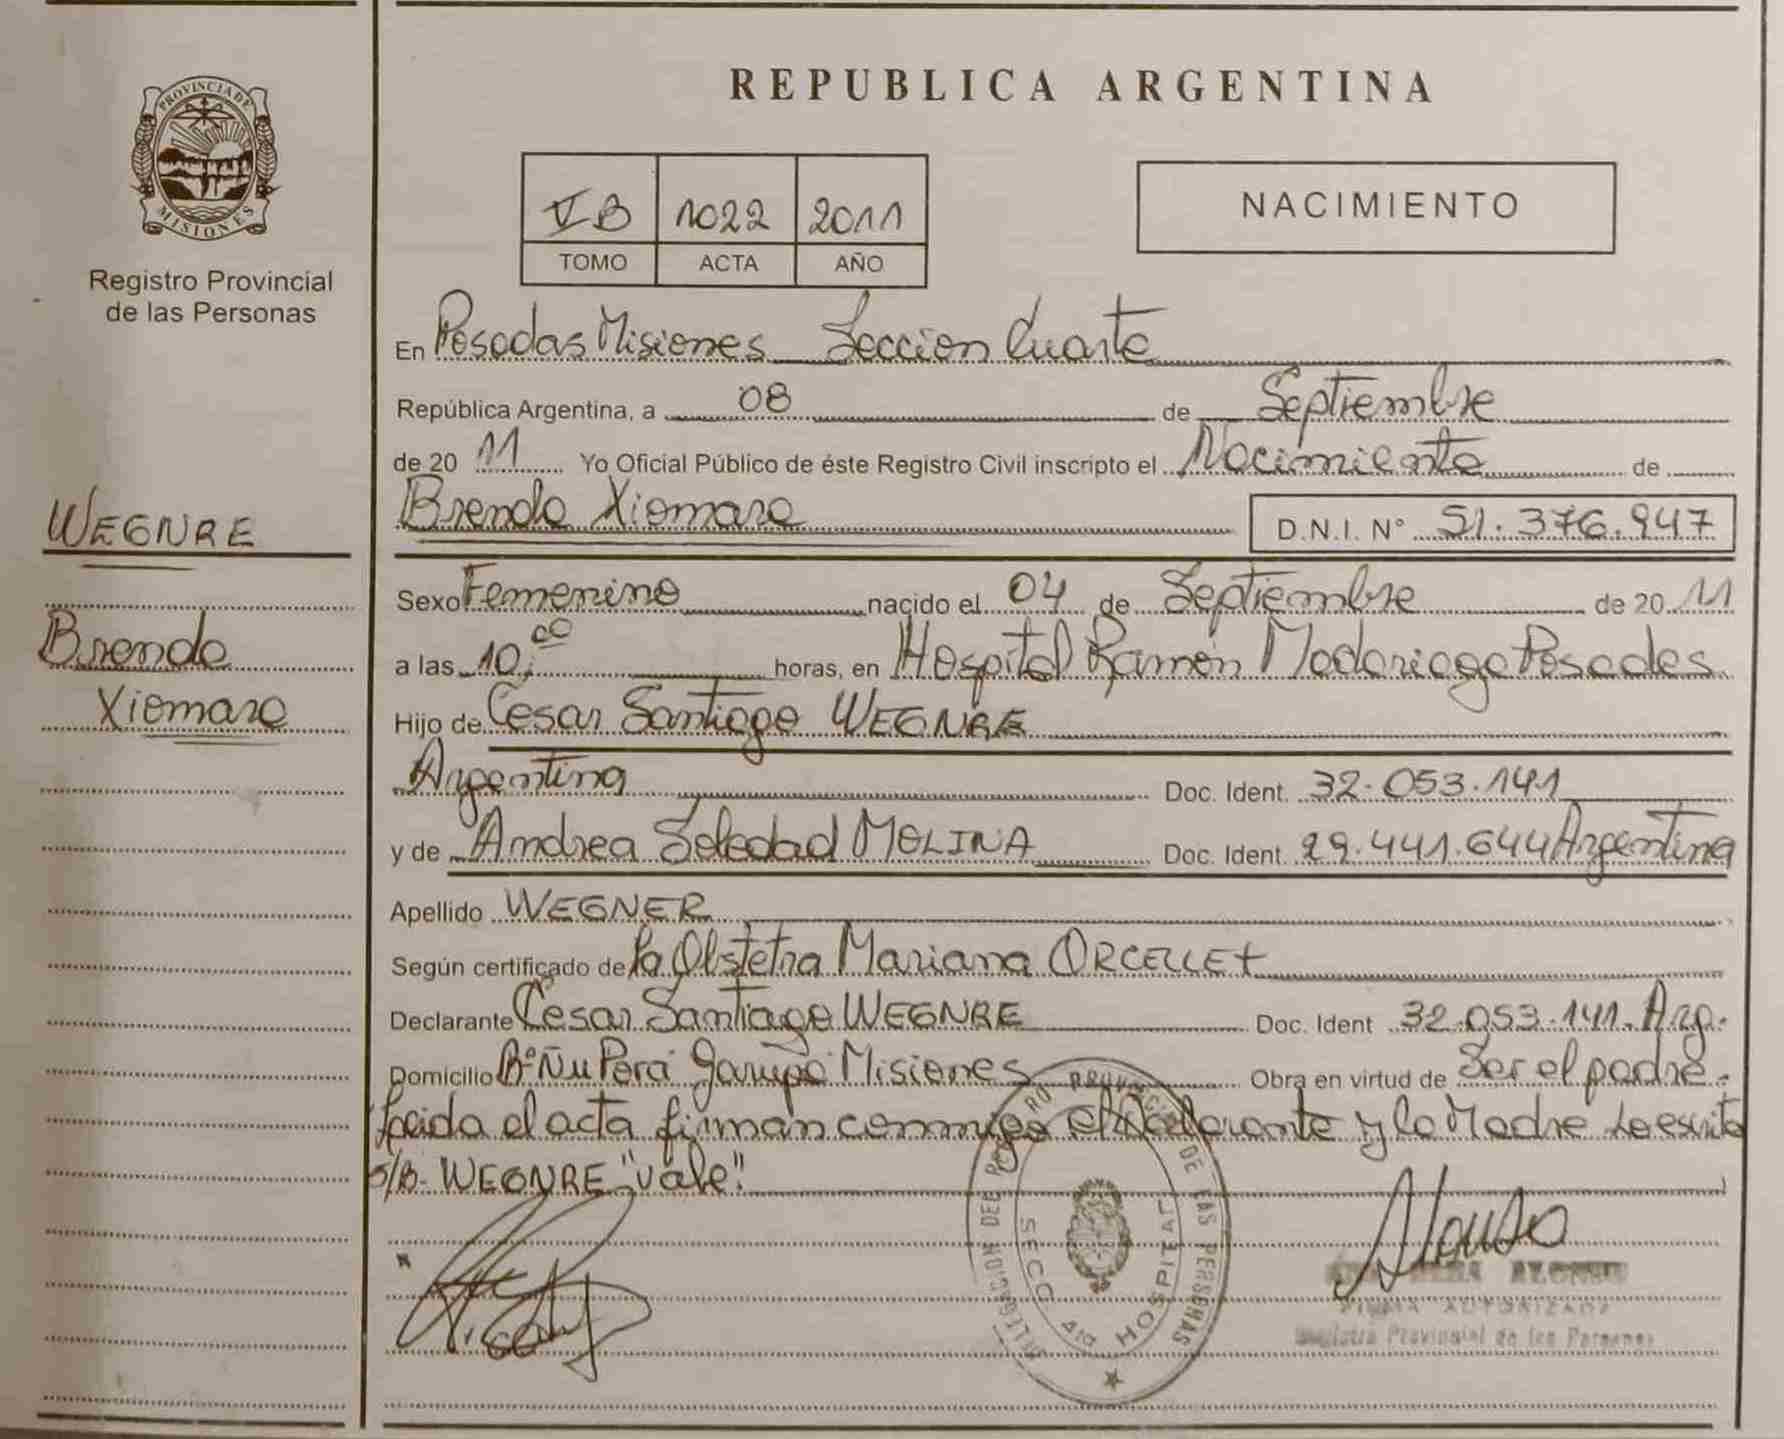 PROVINCIA DE
MISIONES
Registro Provincial
de las Personas
WEGNRE
Brenda
Xiomara
REPUBLICA ARGENTINA
VB 1022 2011
TOMO ACTA AÑO
NACIMIENTO
En Posadas Misiones Seccion Cuarta
República Argentina, a 08 de Septiembre
de 20 11 Yo Oficial Público de éste Registro Civil inscripto el Nacimiento de
Brenda Xiomara D.N.I. N° 51.376.947
Sexo Femenino nacido el 04 de Septiembre de 20 11
a las 10,00 horas, en Hospital Ramón Madariaga Posadas
Hijo de Cesar Santiago WEGNRE
Argentina Doc. Ident. 32.053.141
y de Andrea Soledad MOLINA Doc. Ident. 29.441.644 Argentina
Apellido WEGNER
Según certificado de la Obstetra Mariana ORCELLET
Declarante Cesar Santiago WEGNRE Doc. Ident 32.053.141. Arg.
Domicilio B° Ñu Porá Garupá Misiones Obra en virtud de Ser el padre.
Leida el acta firman conmigo el Declarante y la Madre Lo escrito
S/B- WEGNRE "Vale".
DELEGACION DEL REGISTRO PROVINCIAL DE LAS PERSONAS
SECC 4ta HOSPITAL
Alonso
ALONSO
FIRMA AUTORIZADA
Registro Provincial de las Personas